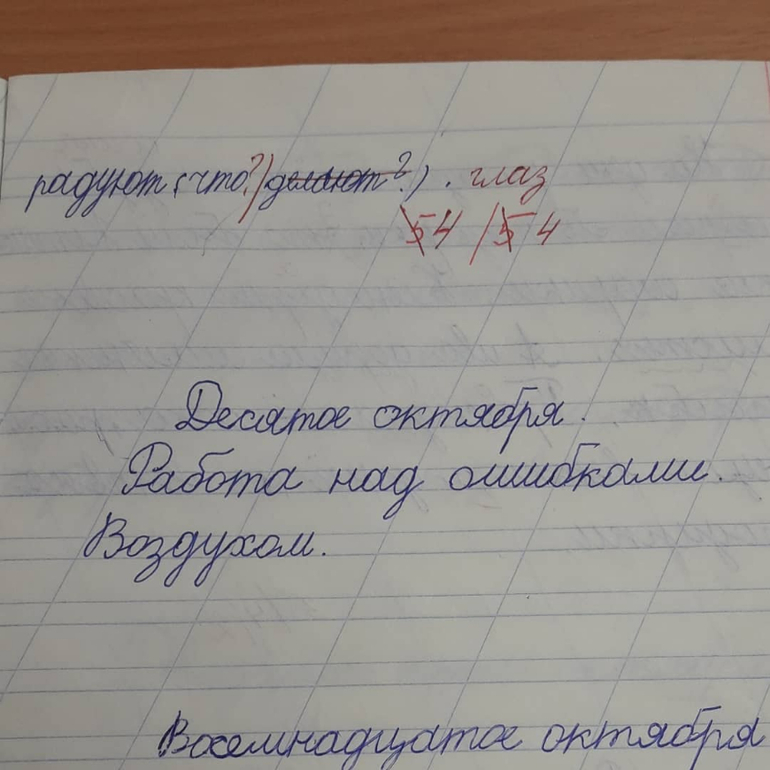 радуют (что?) делают?). глаз
5 4 / 5 4
Десятое октября.
Работа над ошибками.
Воздухом.
Восемнадцатое октября